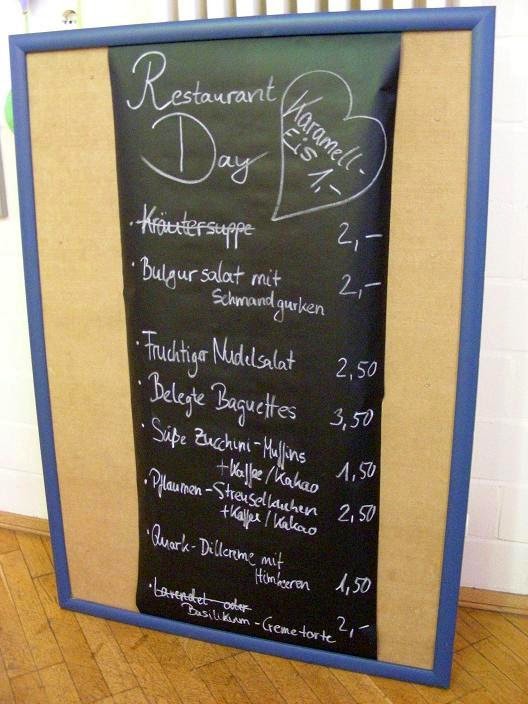 Restaurant
Day
Karamell-
Eis
1,-
· Kräutersuppe 2,-
· Bulgursalat mit 2,-
Schmandgurken
· Fruchtiger Nudelsalat 2,50
· Belegte Baguettes 3,50
· Süße Zucchini-Muffins
+ Kaffee/Kakao 1,50
· Pflaumen-Streuselkuchen 2,50
+ Kaffee/Kakao
· Quark-Dillcreme mit
Himbeeren 1,50
· Lavendel oder
Basilikum-Cremetorte 2,-